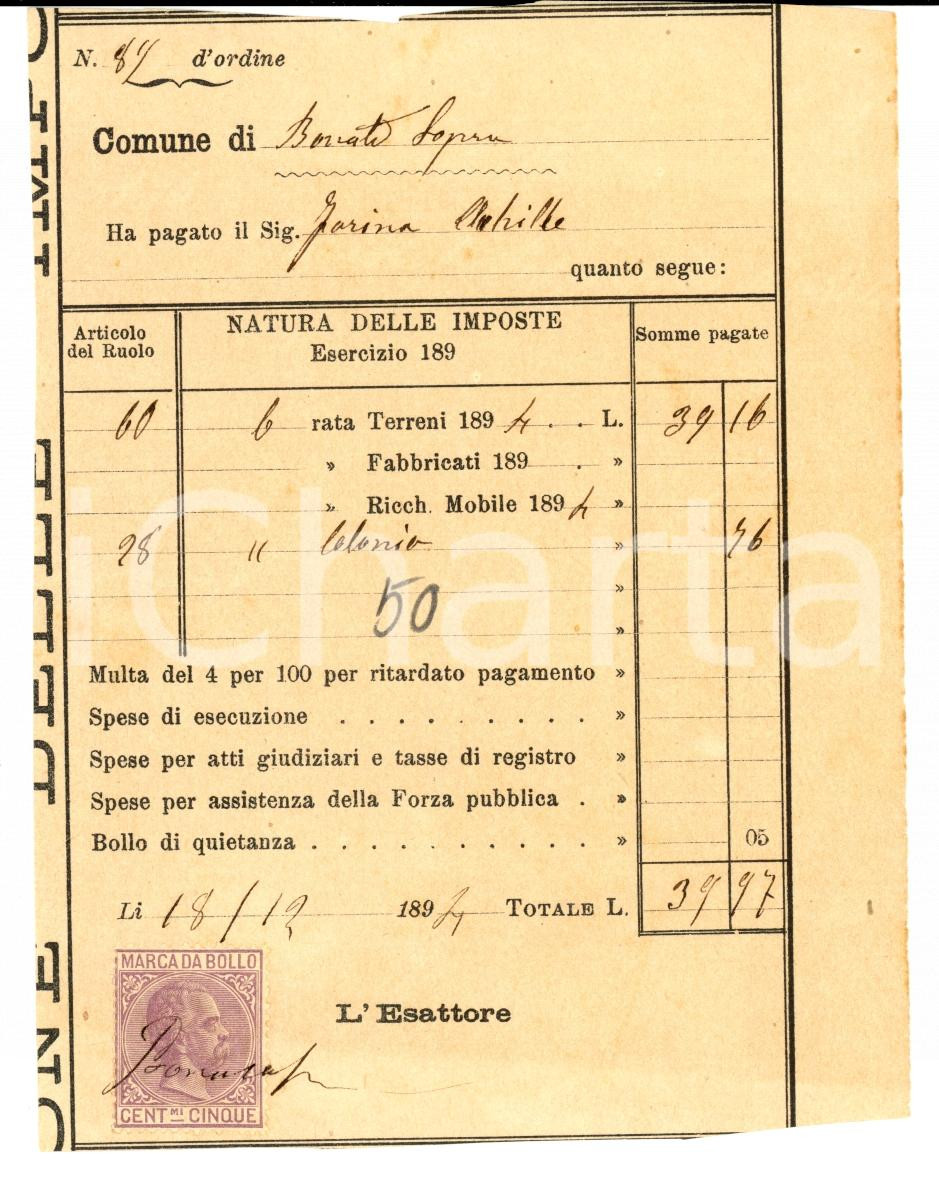 N. 87 d'ordine
Comune di Bonate Sopra
Ha pagato il Sig. Farina Achille
quanto segue:
Articolo del Ruolo
NATURA DELLE IMPOSTE
Esercizio 189
Somme pagate
60 6 rata Terreni 1894 . . L. 39 16
» Fabbricati 189 . »
» Ricch. Mobile 1894 »
28 " Colonia » 76
»
50
»
Multa del 4 per 100 per ritardato pagamento »
Spese di esecuzione . . . . . . . . . »
Spese per atti giudiziari e tasse di registro »
Spese per assistenza della Forza pubblica . »
Bollo di quietanza . . . . . . . . . . » 05
Li 18/12 1894 TOTALE L. 39 97
MARCA DA BOLLO
L'Esattore
CENT.MI CINQUE
DELLE
iCharta